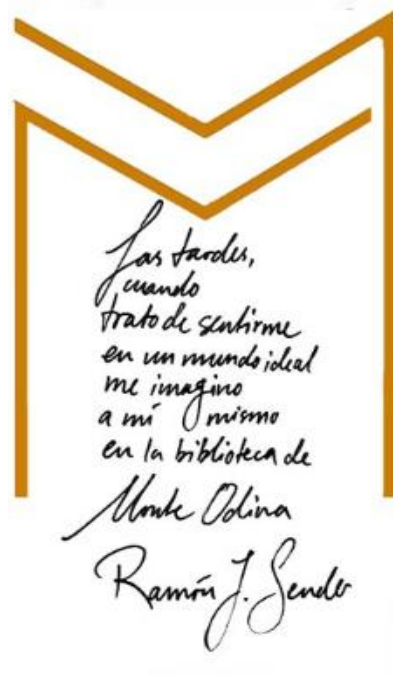 Las tardes,
cuando
trato de sentirme
en un mundo ideal
me imagino
a mí mismo
en la biblioteca de
Monte Odina
Ramón J. Sender